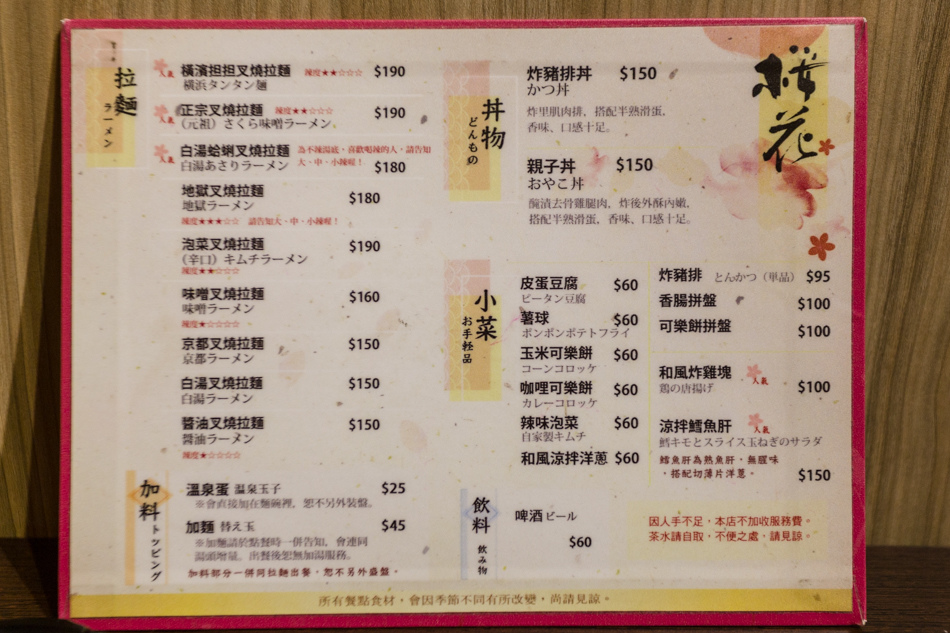 桜花
拉麵
ラーメン
人氣 橫濱担担叉燒拉麵 辣度★★☆☆☆ $190
横浜タンタン麺
人氣 正宗叉燒拉麵 辣度★★☆☆☆ $190
（元祖）さくら味噌ラーメン
人氣 白湯蛤蜊叉燒拉麵 為不辣湯底、喜歡喝辣的人，請告知
白湯あさりラーメン 大、中、小辣喔！ $180
地獄叉燒拉麵 $180
地獄ラーメン
辣度★★★☆☆ 請告知大、中、小辣喔！
泡菜叉燒拉麵 $190
（辛口）キムチラーメン
辣度★★☆☆☆
味噌叉燒拉麵 $160
味噌ラーメン
辣度★☆☆☆☆
京都叉燒拉麵 $150
京都ラーメン
白湯叉燒拉麵 $150
白湯ラーメン
醬油叉燒拉麵 $150
醤油ラーメン
辣度★☆☆☆☆
加料
トッピング
溫泉蛋 温泉玉子 $25
※會直接加在麵碗裡，恕不另外裝盤。
加麵 替え玉 $45
※加麵請於點餐時一併告知，會連同
湯頭增量。出餐後恕無加湯服務。
加料部分一併同拉麵出餐，恕不另外盛盤。
丼物
どんもの
炸豬排丼 $150
かつ丼
炸里肌肉排，搭配半熟滑蛋，
香味、口感十足。
親子丼 $150
おやこ丼
醃漬去骨雞腿肉，炸後外酥內嫩，
搭配半熟滑蛋，香味、口感十足。
小菜
お手軽品
皮蛋豆腐 $60
ピータン豆腐
薯球 $60
ボンボンポテトフライ
玉米可樂餅 $60
コーンコロッケ
咖哩可樂餅 $60
カレーコロッケ
辣味泡菜 $60
自家製キムチ
和風涼拌洋蔥 $60
炸豬排 とんかつ（単品） $95
香腸拼盤 $100
可樂餅拼盤 $100
和風炸雞塊 人氣 $100
鶏の唐揚げ
涼拌鱈魚肝 人氣
鱈キモとスライス玉ねぎのサラダ
鱈魚肝為熟魚肝，無腥味
，搭配切薄片洋蔥。 $150
飲料
飲み物
啤酒 ビール
$60
因人手不足，本店不加收服務費。
茶水請自取，不便之處，請見諒。
所有餐點食材，會因季節不同有所改變，尚請見諒。